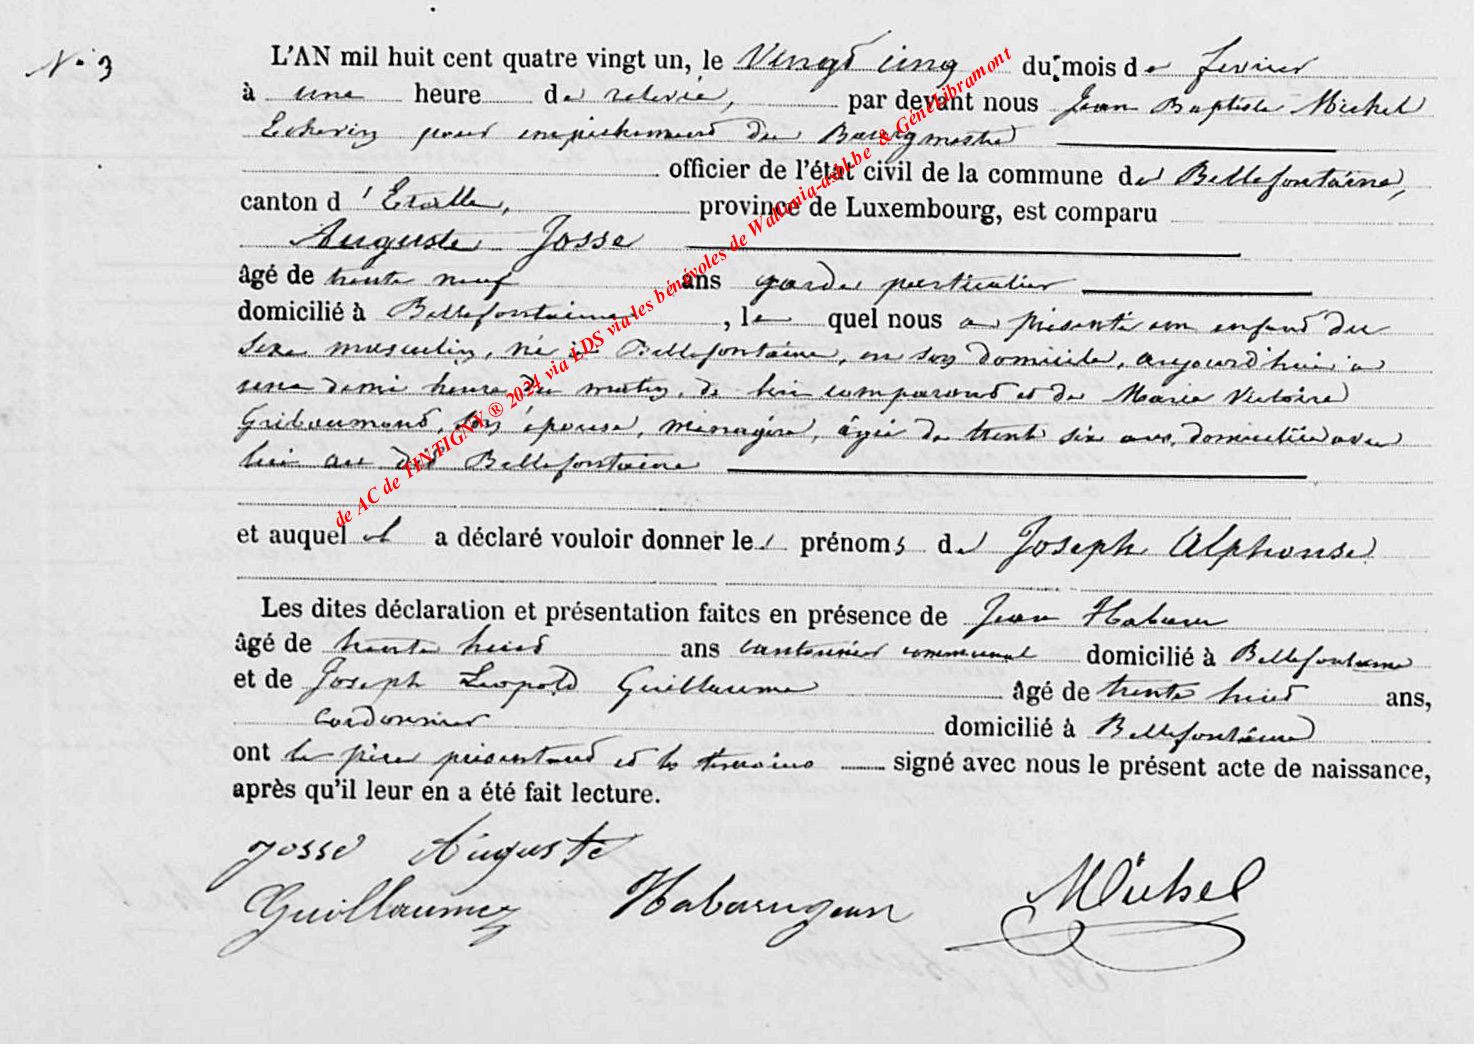 N° 3
L'AN mil huit cent quatre vingt un, le Vingt cinq du mois de fevrier
à une heure de relevée, par devant nous Jean Baptiste Michel
Echevin pour empêchement du Bourgmestre
officier de l'état civil de la commune de Bellefontaine,
canton d'Etalle, province de Luxembourg, est comparu
Auguste Josse
âgé de trente neuf ans garde particulier
domicilié à Bellefontaine, le quel nous a présenté un enfant du
sexe masculin, né à Bellefontaine, en son domicile, aujourd'hui à
une demi heure du matin, de lui comparant et de Marie Victoire
Gribaumont, son épouse, ménagère, âgée de trent six ans, domiciliée avec
lui au dit Bellefontaine
et auquel il a déclaré vouloir donner les prénoms de Joseph Alphonse
Les dites déclaration et présentation faites en présence de Jean Habaru
âgé de trente huit ans cantonnier communal domicilié à Bellefontaine
et de Joseph Léopold Guillaume âgé de trente huit ans,
cordonnier domicilié à Bellefontaine
ont le père présentant et les témoins signé avec nous le présent acte de naissance,
après qu'il leur en a été fait lecture.
Josse Auguste
Guillaume Habaru jean Michel
de AC de TINTIGNY ® 2024 via LDS via les bénévoles de Wallonia-asbl.be & Génélibramont